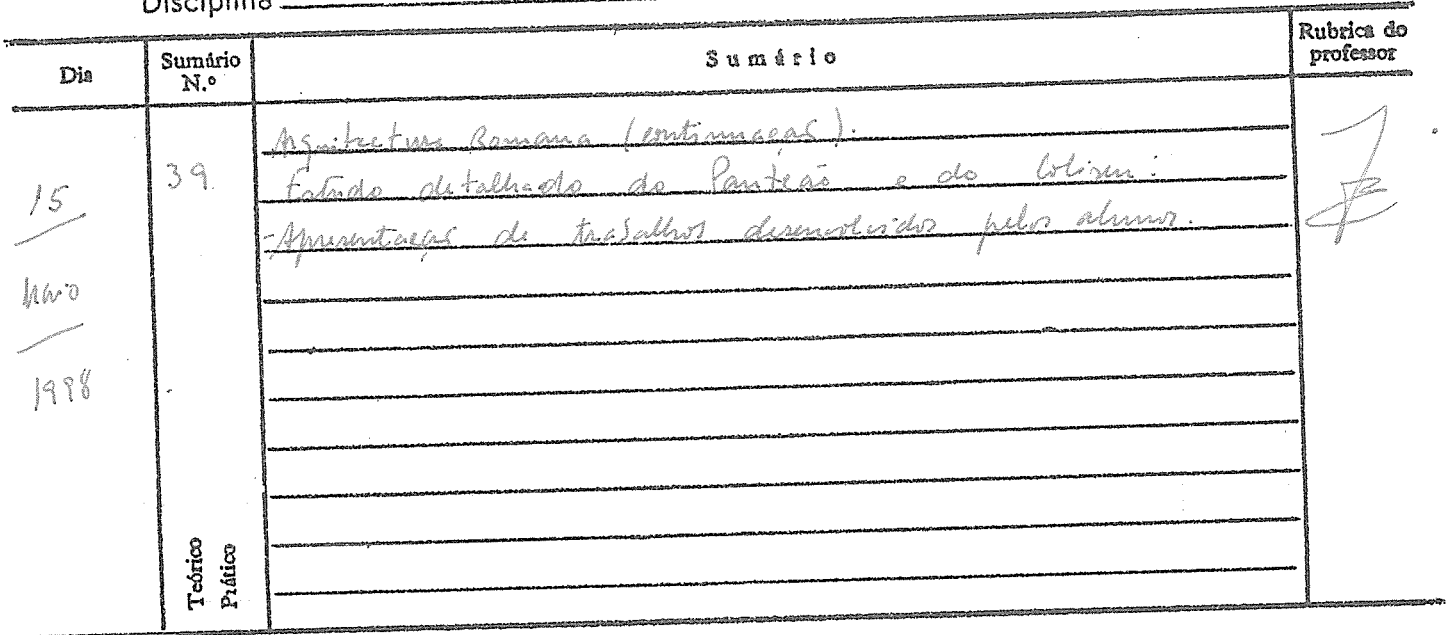 Disciplina
Dia
Sumário N.º
Sumário
Rubrica do professor
15
Maio
1998
39.
Arquitectura Romana (continuação).
Estudo detalhado do Panteão e do Coliseu.
- Apresentação de trabalhos desenvolvidos pelos alunos.
Teórico
Prático